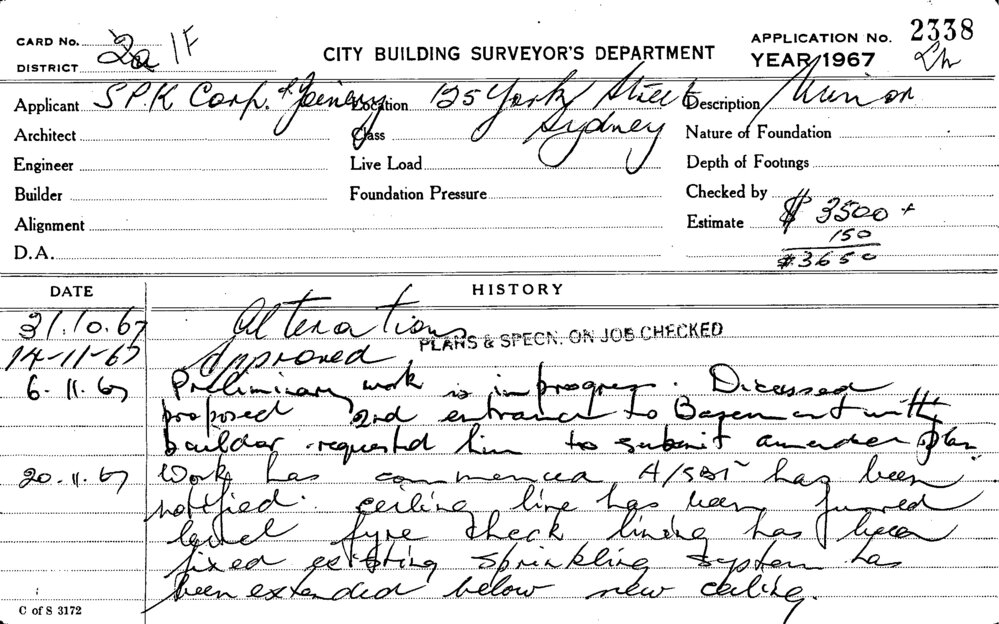 CARD No. 2a 1F
DISTRICT
CITY BUILDING SURVEYOR'S DEPARTMENT
APPLICATION No. 2338
YEAR 1967
Applicant S.P.K Corp. & Joinery Location 125 York Street Sydney Description Minor
Architect Class Nature of Foundation
Engineer Live Load Depth of Footings
Builder Foundation Pressure Checked by
Alignment Estimate $ 3500 +
150
D.A. $3650
DATE HISTORY
31.10.67 Alterations
PLANS & SPECN. ON JOB CHECKED
14-11-67 Approved
6.11.67 Preliminary work is in progress. Dicussed
proposed 2nd entrance to Basement with
builder requested him to submit amended plan
20.11.67 Work has commenced A/SBS has been
notified. ceiling line has been furred
level fyre check lining has been
fixed existing sprinkling system has
been extended below new ceiling.
C of S 3172